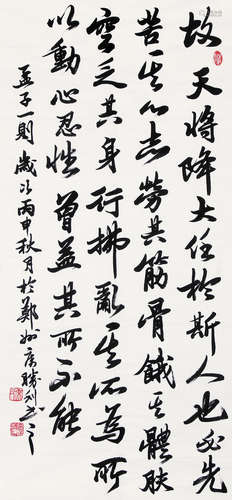 故天将降大任於斯人也必先
苦其心志勞其筋骨餓其體膚
空乏其身行拂亂其所為所
以動心忍性曾益其所不能
孟子一則歲次丙申秋月於鄭州